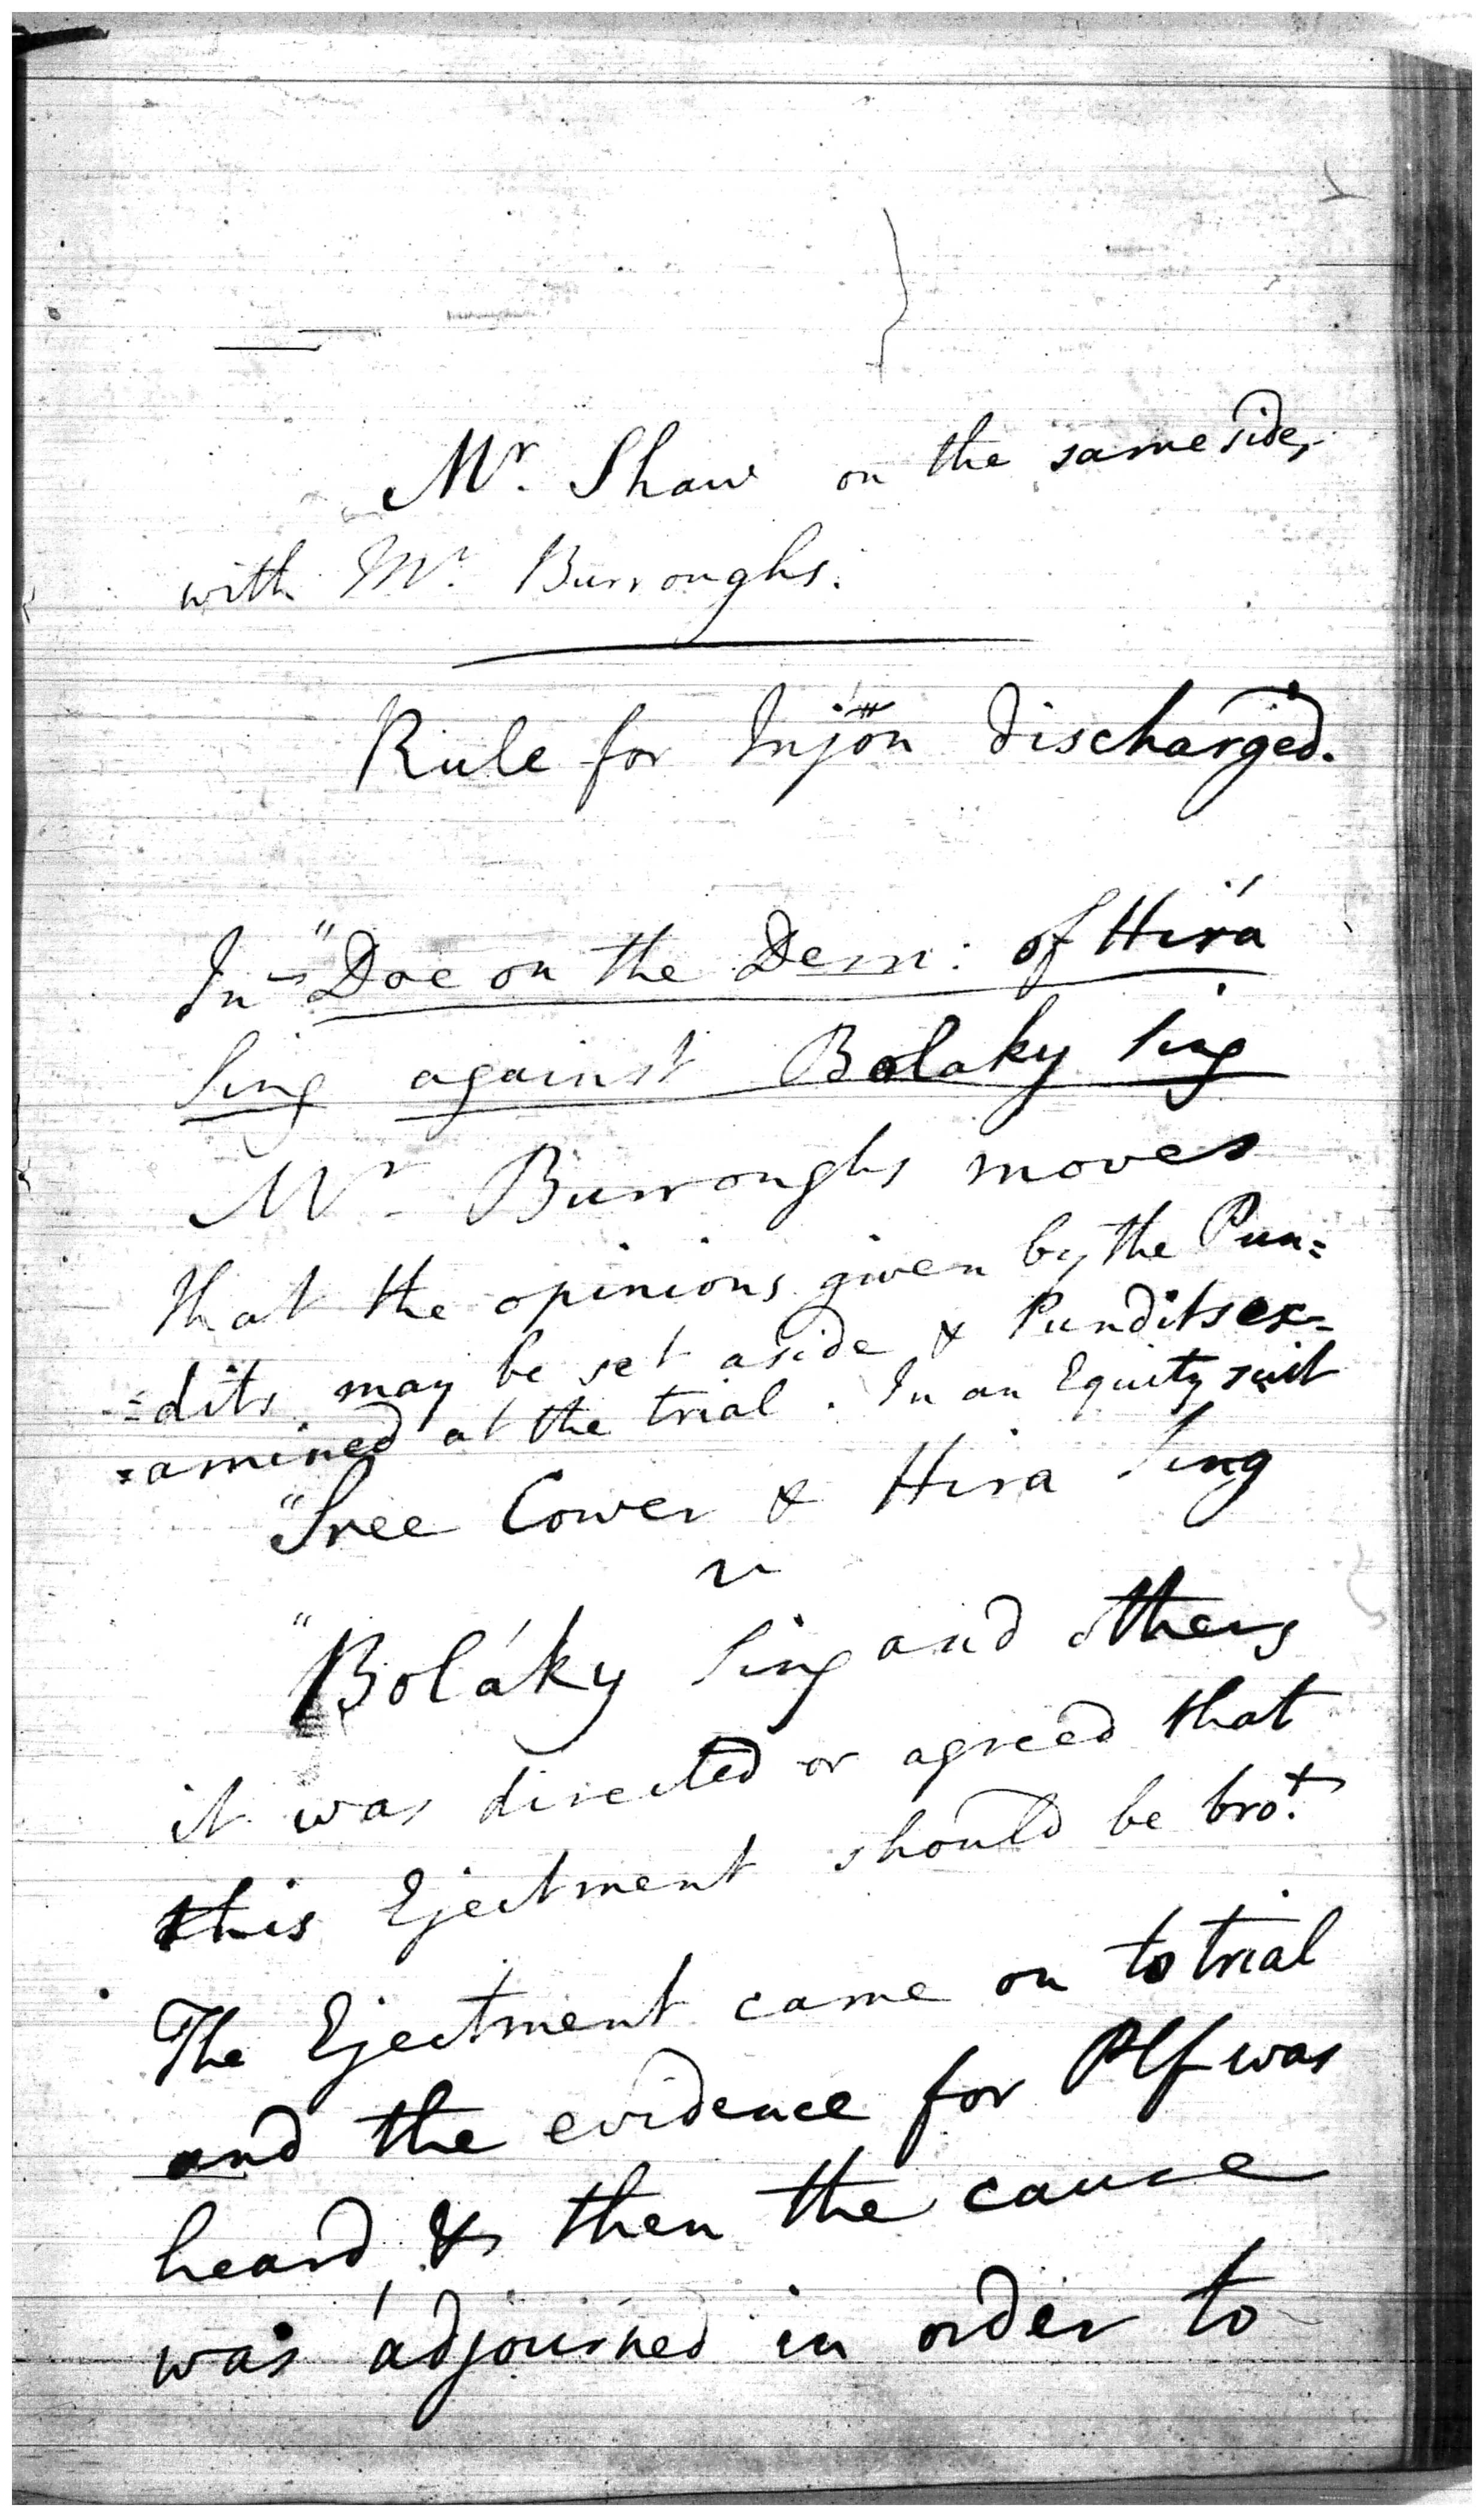 Mr. Shaw on the same side,
with Mr. Burroughs.
Rule for Injön discharged.
In "Doe on the Dem: of Hira
Sing against Bolaky Sing
Mr. Burroughs moves
that the opinions given by the Pun=
=dits may be set aside & Pundits ex=
=amined at the trial. In an Equity suit
"Sree Cower & Hira Sing
v
"Boláky Sing and others
it was directed or agreed that
this Ejectment should be brot.
The Ejectment came on to trial
and the evidence for Plf was
heard, & then the cause
was adjourned in order to